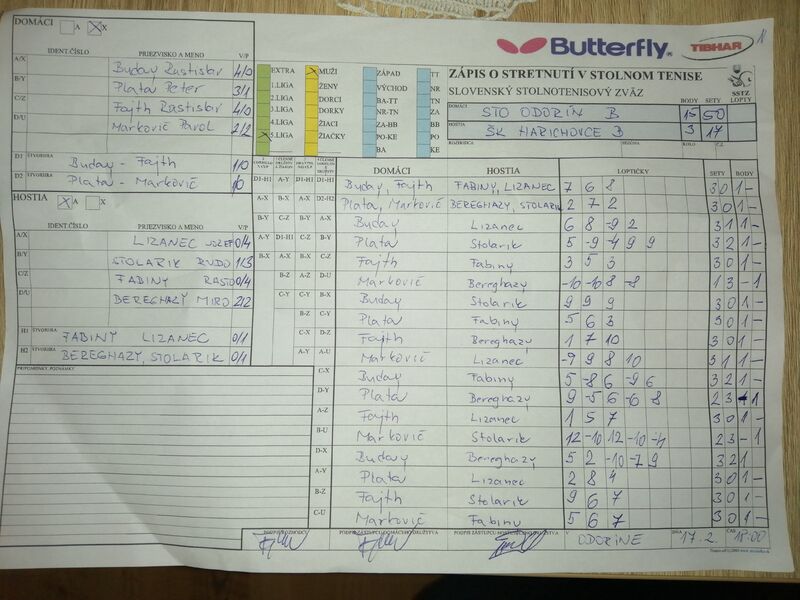 DOMÁCI A X
Butterfly. TIBHAR
IDENT.ČÍSLO PRIEZVISKO A MENO V/P
A/X Buday Rastislav 4/0
B/Y Plata Peter 3/1
C/Z Fajth Rastislav 4/0
D/U Markovič Pavol 2/2
D1 ŠTVORHRA Buday - Fajth 1/0
D2 ŠTVORHRA Plata - Markovič 1/0
EXTRA
1.LIGA
2.LIGA
3.LIGA
4.LIGA
5.LIGA
MUŽI
ŽENY
DORCI
DORKY
ŽIACI
ŽIAČKY
ZÁPAD
VÝCHOD
BA-TT
NR-TN
ZA-BB
PO-KE
BA
TT
NR
TN
ZA
BB
PO
KE
ZÁPIS O STRETNUTÍ V STOLNOM TENISE
SLOVENSKÝ STOLNOTENISOVÝ ZVÄZ
SSTZ
BODY SETY LOPTY
DOMÁCI STO ODORÍN B 15 50
HOSTIA ŠK HARICHOVCE B 3 17
HOSTIA A X
IDENT.ČÍSLO PRIEZVISKO A MENO V/P
A/X LIZANEC JOZEF 0/4
B/Y STOLARIK RUDO 1/3
C/Z FABINY RASTO 0/4
D/U BEREGHAZY MIRO 2/2
H1 ŠTVORHRA FABINY LIZANEC 0/1
H2 ŠTVORHRA BEREGHAZY, STOLARIK 0/1
PRIPOMIENKY, POZNÁMKY
DOMÁCI HOSTIA LOPTIČKY SETY BODY
D1-H1 Buday, Fajth FABINY, LIZANEC 7 6 8 3 0 1 -
D2-H2 Plata, Markovič BEREGHAZY, STOLARIK 2 7 2 3 0 1 -
A-X Buday Lizanec 6 8 -9 2 3 1 1 -
B-Y Plata Stolarik 5 -9 -4 9 9 3 2 1 -
C-Z Fajth Fabiny 3 5 3 3 0 1 -
D-U Markovič Bereghazy -10 -10 8 -8 1 3 - 1
B-X Buday Stolarik 9 9 9 3 0 1 -
C-Y Plata Fabiny 5 6 3 3 0 1 -
D-Z Fajth Bereghazy 1 7 10 3 0 1 -
A-U Markovič Lizanec -9 9 8 10 3 1 1 -
C-X Buday Fabiny 5 -8 6 -9 6 3 2 1 -
D-Y Plata Bereghazy 9 -5 6 -6 -8 2 3 - 1
A-Z Fajth Lizanec 1 5 7 3 0 1 -
B-U Markovič Stolarik 12 -10 12 -10 -4 2 3 - 1
D-X Buday Bereghazy 5 2 -10 -7 9 3 2 1
A-Y Plata Lizanec 2 8 4 3 0 1 -
B-Z Fajth Stolarik 9 6 7 3 0 1 -
C-U Markovič Fabiny 5 6 7 3 0 1 -
PODPIS ROZHODCU PODPIS ZÁSTUPCU DOMÁCEHO DRUŽSTVA PODPIS ZÁSTUPCU HOSTÍ V ODORINE DŇA 17.2. ČAS 18:00